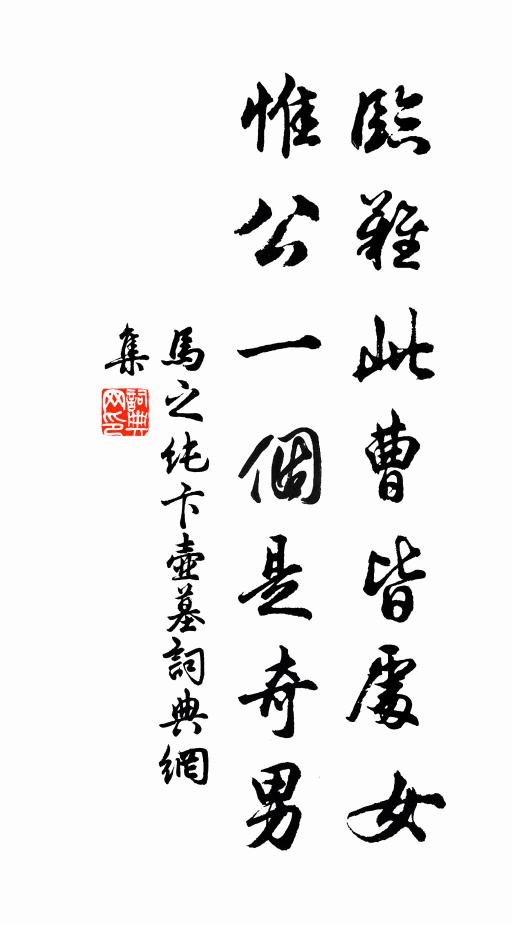 臨難此曹皆處女
惟公一個是奇男
馬之純卞壺墓詞典網
集
詞典
网印